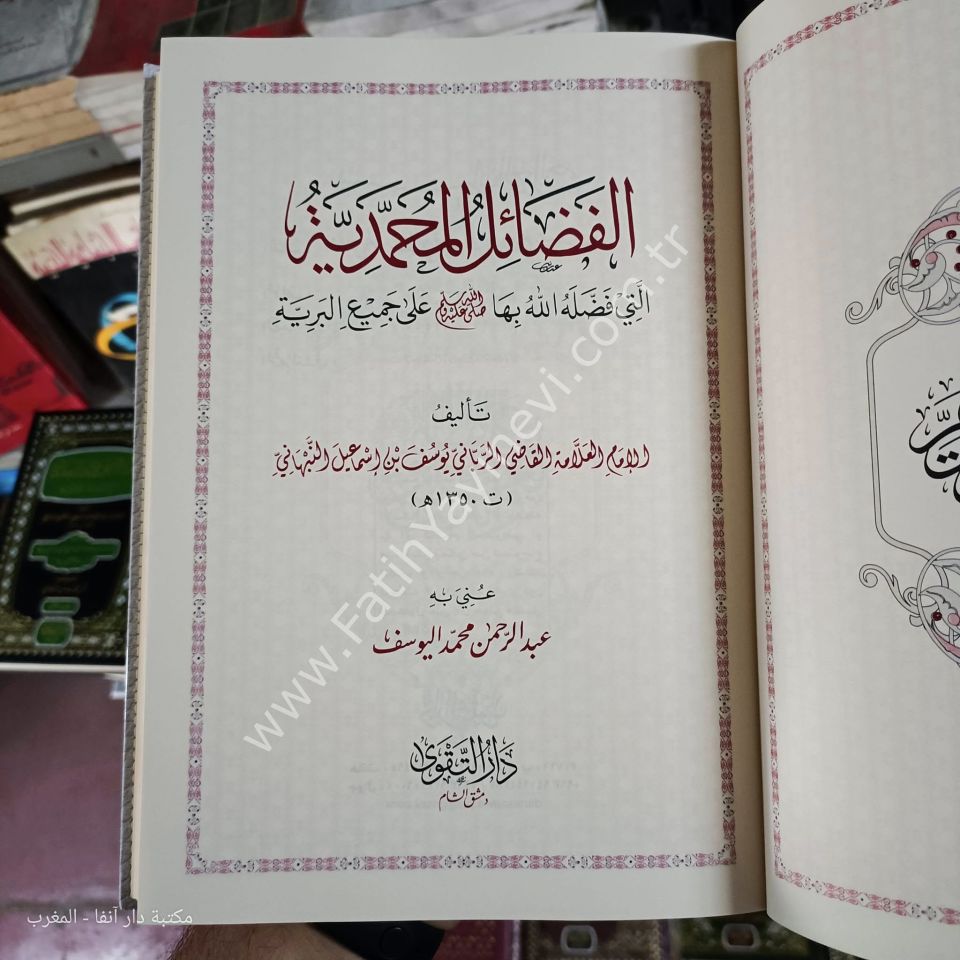 الفَضَائِلُ المُحَمَّدِيَّةُ
الَّتِي فَضَّلَهُ اللهُ بِهَا ﷺ عَلَى جَمِيْعِ البَرِيَّةِ
تَأليفُ
الإمَامِ العَلَّامَةِ القَاضِي الرَّبَّانِيِّ يُوسُفَ بْنِ إسْمَاعِيلَ النَّبْهَانِيِّ
(ت ١٣٥٠ه)
عُنِيَ بِهِ
عبد الرّحمن محمّد اليوسف
دَارُ التَّقْوَى
دمشق الشام
www.FatihYayinevi.com.tr
مكتبة دار آنفا - المغرب